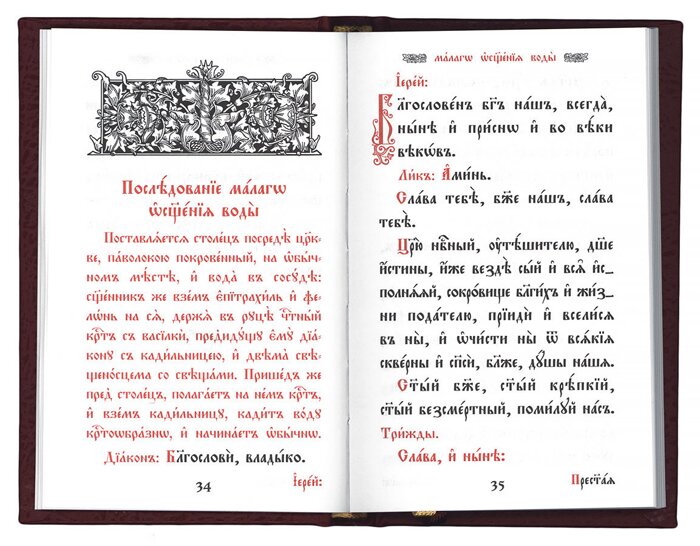 Послѣ́дованїе ма́лагѡ
ѡ҆сщ҃е́нїѧ воды̀
Поставлѧ́етсѧ столе́цъ посредѣ̀ цр҃к-
ве, па́волокою покрове́нный, на ѡ҆бы́ч-
номъ мѣ́стѣ, и҆ вода̀ въ сосꙋ́дѣ:
сщ҃е́нникъ же взе́мъ є҆пїтрахи́ль и҆ фе-
ло́нь на сѧ̀, держа̀ въ рꙋцѣ̀ чⷭ҇тны́й
крⷭ҇тъ съ васїлкѝ, предидꙋ́щꙋ є҆мꙋ̀ дїа́-
конꙋ съ кади́льницею, и҆ двѣма̀ свѣ-
щено́сцема со свѣща́ми. Прише́дъ же
пред̾ столе́цъ, полага́етъ на не́мъ крⷭ҇тъ,
и҆ взе́мъ кади́льницꙋ, кади́тъ во́дꙋ
крⷭ҇тоѡбра́знѡ, и҆ начина́етъ ѡ҆бы́чнѡ.
Дїа́конъ: Бл҃гословѝ, влады́ко.
34
І҆ере́й:
ма́лагѡ ѡ҆сщ҃е́нїѧ воды̀
І҆ере́й:
Бл҃гослове́нъ бг҃ъ на́шъ, всегда̀,
ны́нѣ и҆ при́снѡ и҆ во вѣ́ки
вѣкѡ́въ.
Ли́къ: А҆ми́нь.
Сла́ва тебѣ̀, бж҃е на́шъ, сла́ва
тебѣ̀.
Цр҃ю̀ нбⷭ҇ный, ᲂу҆тѣ́шителю, дш҃е
и҆́стины, и҆́же вездѣ̀ сы́й и҆ всѧ̑ и҆с_
полнѧ́ѧй, сокро́вище бл҃ги́хъ и҆ жи́з_
ни пода́телю, прїидѝ и҆ всели́сѧ
въ ны̀, и҆ ѡ҆чи́сти ны̀ ѿ всѧ́кїѧ
скве́рны и҆ сп҃сѝ, бл҃же, дꙋ́шы на́шѧ.
Ст҃ы́й бж҃е, ст҃ы́й крѣ́пкїй,
ст҃ы́й безсме́ртный, поми́лꙋй на́съ.
Три́жды.
Сла́ва, и҆ ны́нѣ:
35
Прест҃а́ѧ